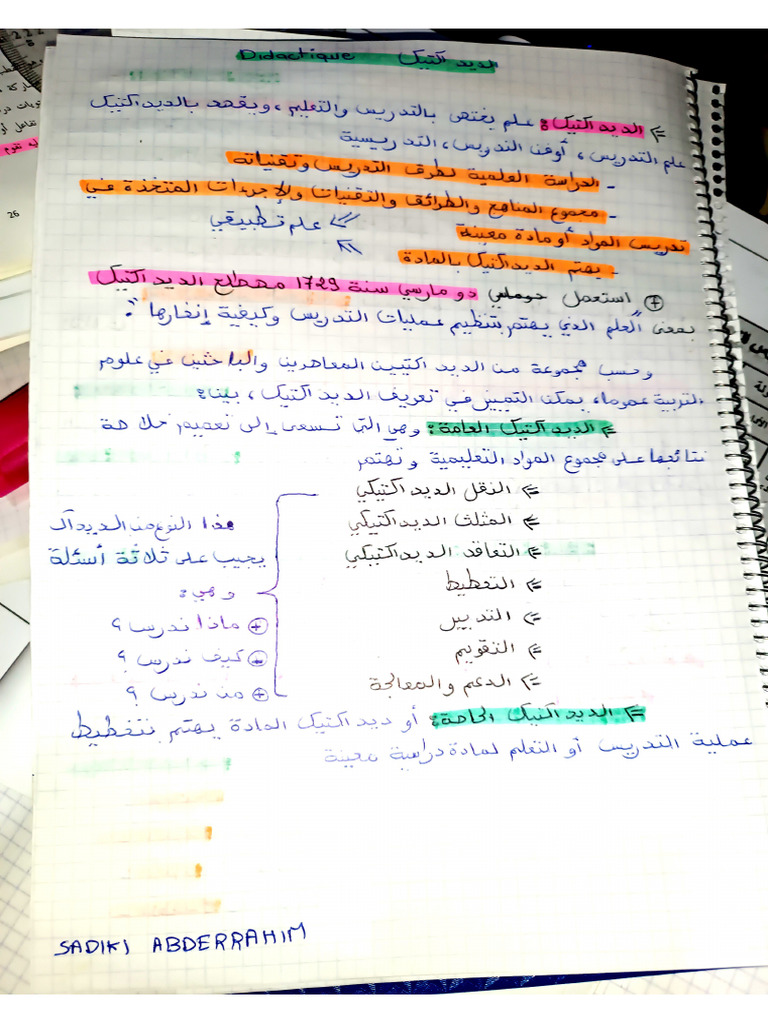 الديداكتيك Didactique
الديداكتيك: علم يختص بالتدريس والتعليم، ويقصد بالديداكتيك
علم التدريس، أو فن التدريس، التدريسية
- الدراسة العلمية لطرق التدريس وتقنياته
- مجموع المناهج والطرائق والتقنيات والإجراءات المتخذة في
تدريس المواد أو مادة معينة
علم تطبيقي
- يهتم الديداكتيك بالمادة
استعمل دو مارسي سنة 1729 مصطلح الديداكتيك
بمعنى "العلم الذي يهتم بتنظيم عمليات التدريس وكيفية إنجازها".
وحسب مجموعة من الديداكتيين المعاصرين والباحثين في علوم
التربية عموما، يمكن التمييز في تعريف الديداكتيك، بين:
الديداكتيك العامة: وهي التي تسعى إلى تعميم خلاصة
نتائجها على مجموع المواد التعليمية وتهتم
النقل الديداكتيكي
المثلث الديداكتيكي
التعاقد الديداكتيكي
التخطيط
التدبير
التقويم
الدعم والمعالجة
هذا النوع من الديداك
يجيب على ثلاثة أسئلة
وهي:
ماذا ندرس؟
كيف ندرس؟
من ندرس؟
الديداكتيك الخاصة: أو ديداكتيك المادة يهتم بتخطيط
عملية التدريس أو التعلم لمادة دراسية معينة
SADIKI ABDERRAHIM
26